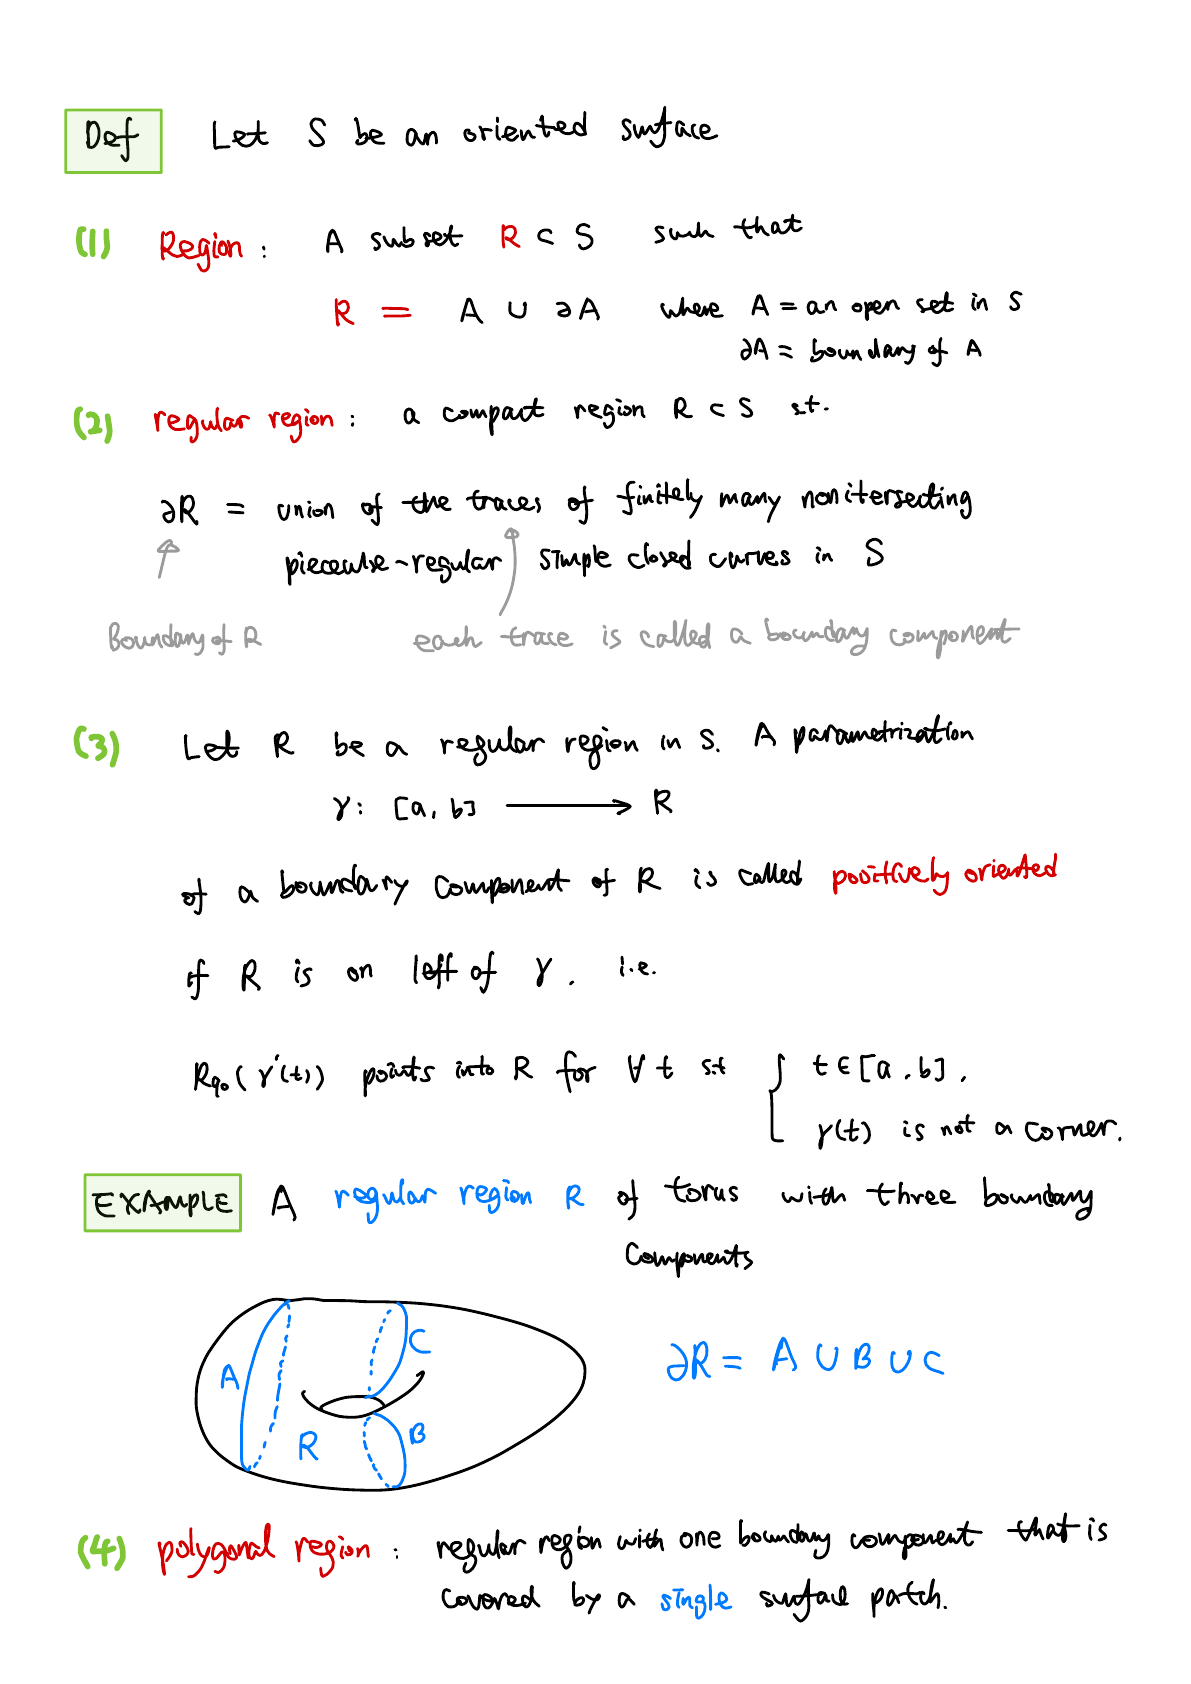 Def Let S be an oriented surface
(1) Region : A subset R ⊂ S such that
R = A ∪ ∂A where A = an open set in S
∂A = boundary of A
(2) regular region : a compact region R ⊂ S st.
∂R = union of the traces of finitely many nonitersecting
piecewise-regular simple closed curves in S
Boundary of R each trace is called a boundary component
(3) Let R be a regular region in S. A parametrization
γ: [a, b] ⟶ R
of a boundary component of R is called positively oriented
if R is on left of γ. i.e.
R₉₀(γ'(t)) points into R for ∀ t s.t { t ∈ [a, b],
γ(t) is not a corner.
EXAMPLE A regular region R of torus with three boundary
components
A C
R B
∂R = A ∪ B ∪ C
(4) polygonal region : regular region with one boundary component that is
covered by a single surface patch.